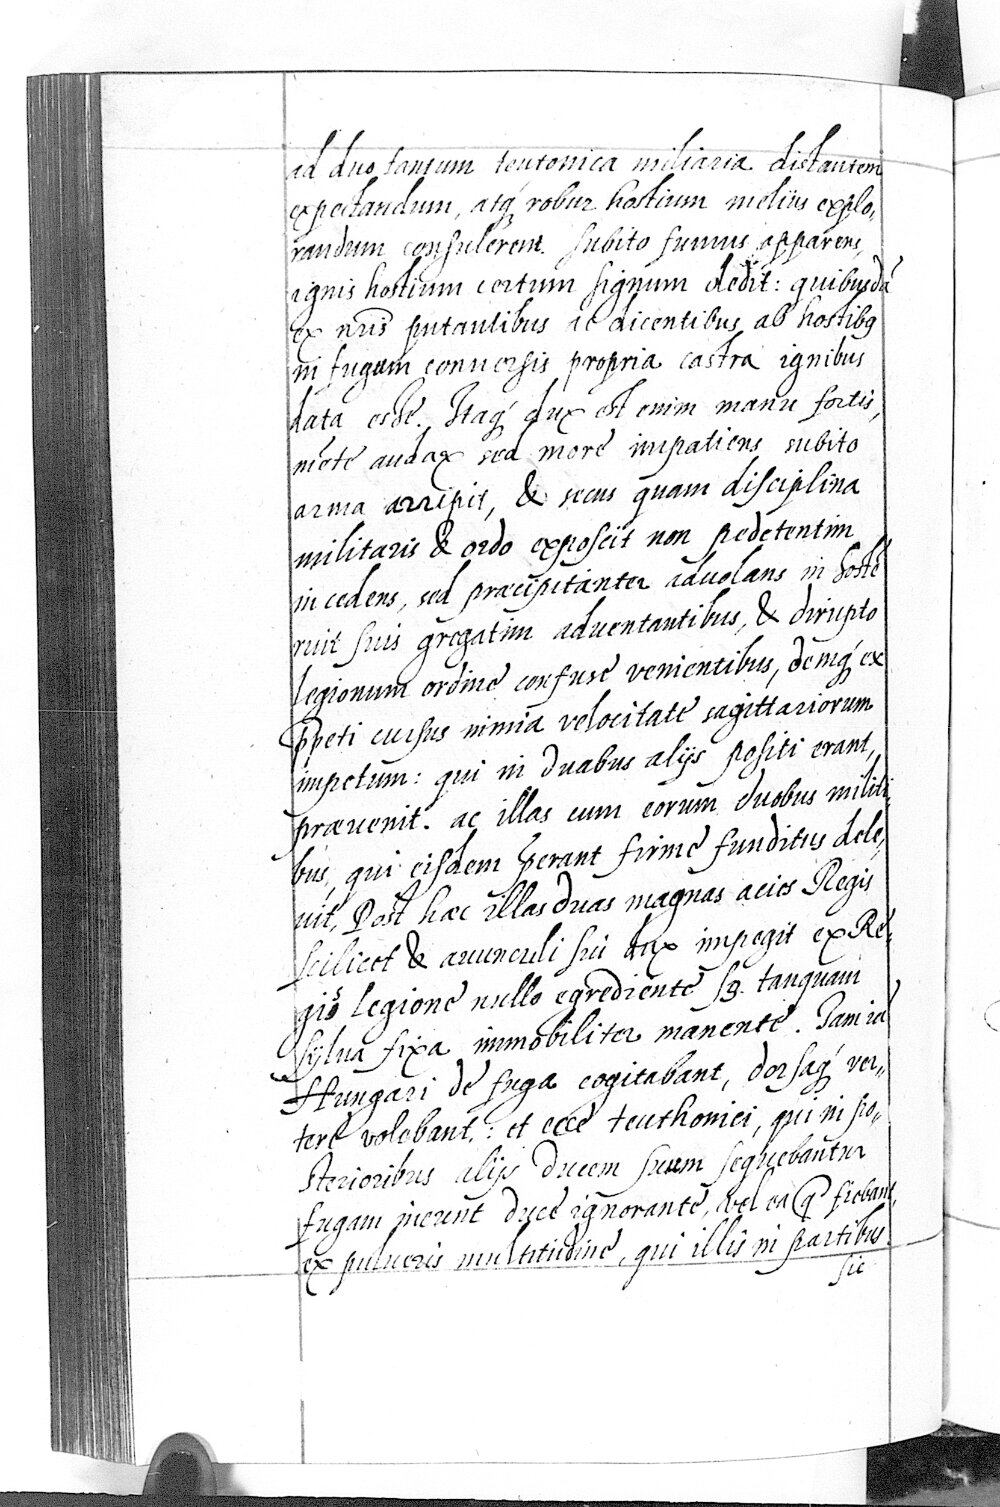 ad duo tantum teutonica miliaria distantem
expectandum, atq́ robur hostium meliùs explo,
randum consulerent. Subito fumus apparens,
ignis hostium certum signum dedit: quibusdā
ex nr̄is putantibus ac dicentibus, ab hostibꝯ
in fugam conuersis propria castra ignibus
data esse. Itaq́ dux est enim manu fortis,
mẽte audax sed morę impatiens subito
arma arripit, & secus quam disciplina
militaris & ordo exposcit non pedetentim
incedens, sed præcipitanter aduolans in hostẽ
ruit suis gregatim aduentantibus, & dirupto
legionum ordine confuse venientibus, demq́ ex
ꝓpeti cursus nimia velocitate sagittariorum
impetum: qui in duabus alijs positi erant,
præuenit. ac illas cum eorum duobus militi,
bus, qui eisdem p̱erant firme funditus dele,
uit, Post hæc illas duas magnas acies Regis
scilicet & auunculi sui dux impegit ex Re,
gis legione nullo egrediente sꝫ tanquam
sylua fixa immobiliter manente. Iam iã
Hungari de fuga cogitabant, dorsaq́ ver,,
tere volebant,: et ecce teuthonici, qui in po,,
sterioribus alijs ducem suum sequebantur
fugam inerunt duce ignorante, vel ea q̃ fiebant,
ex pulueris multitudine, qui illis in partibus
sic